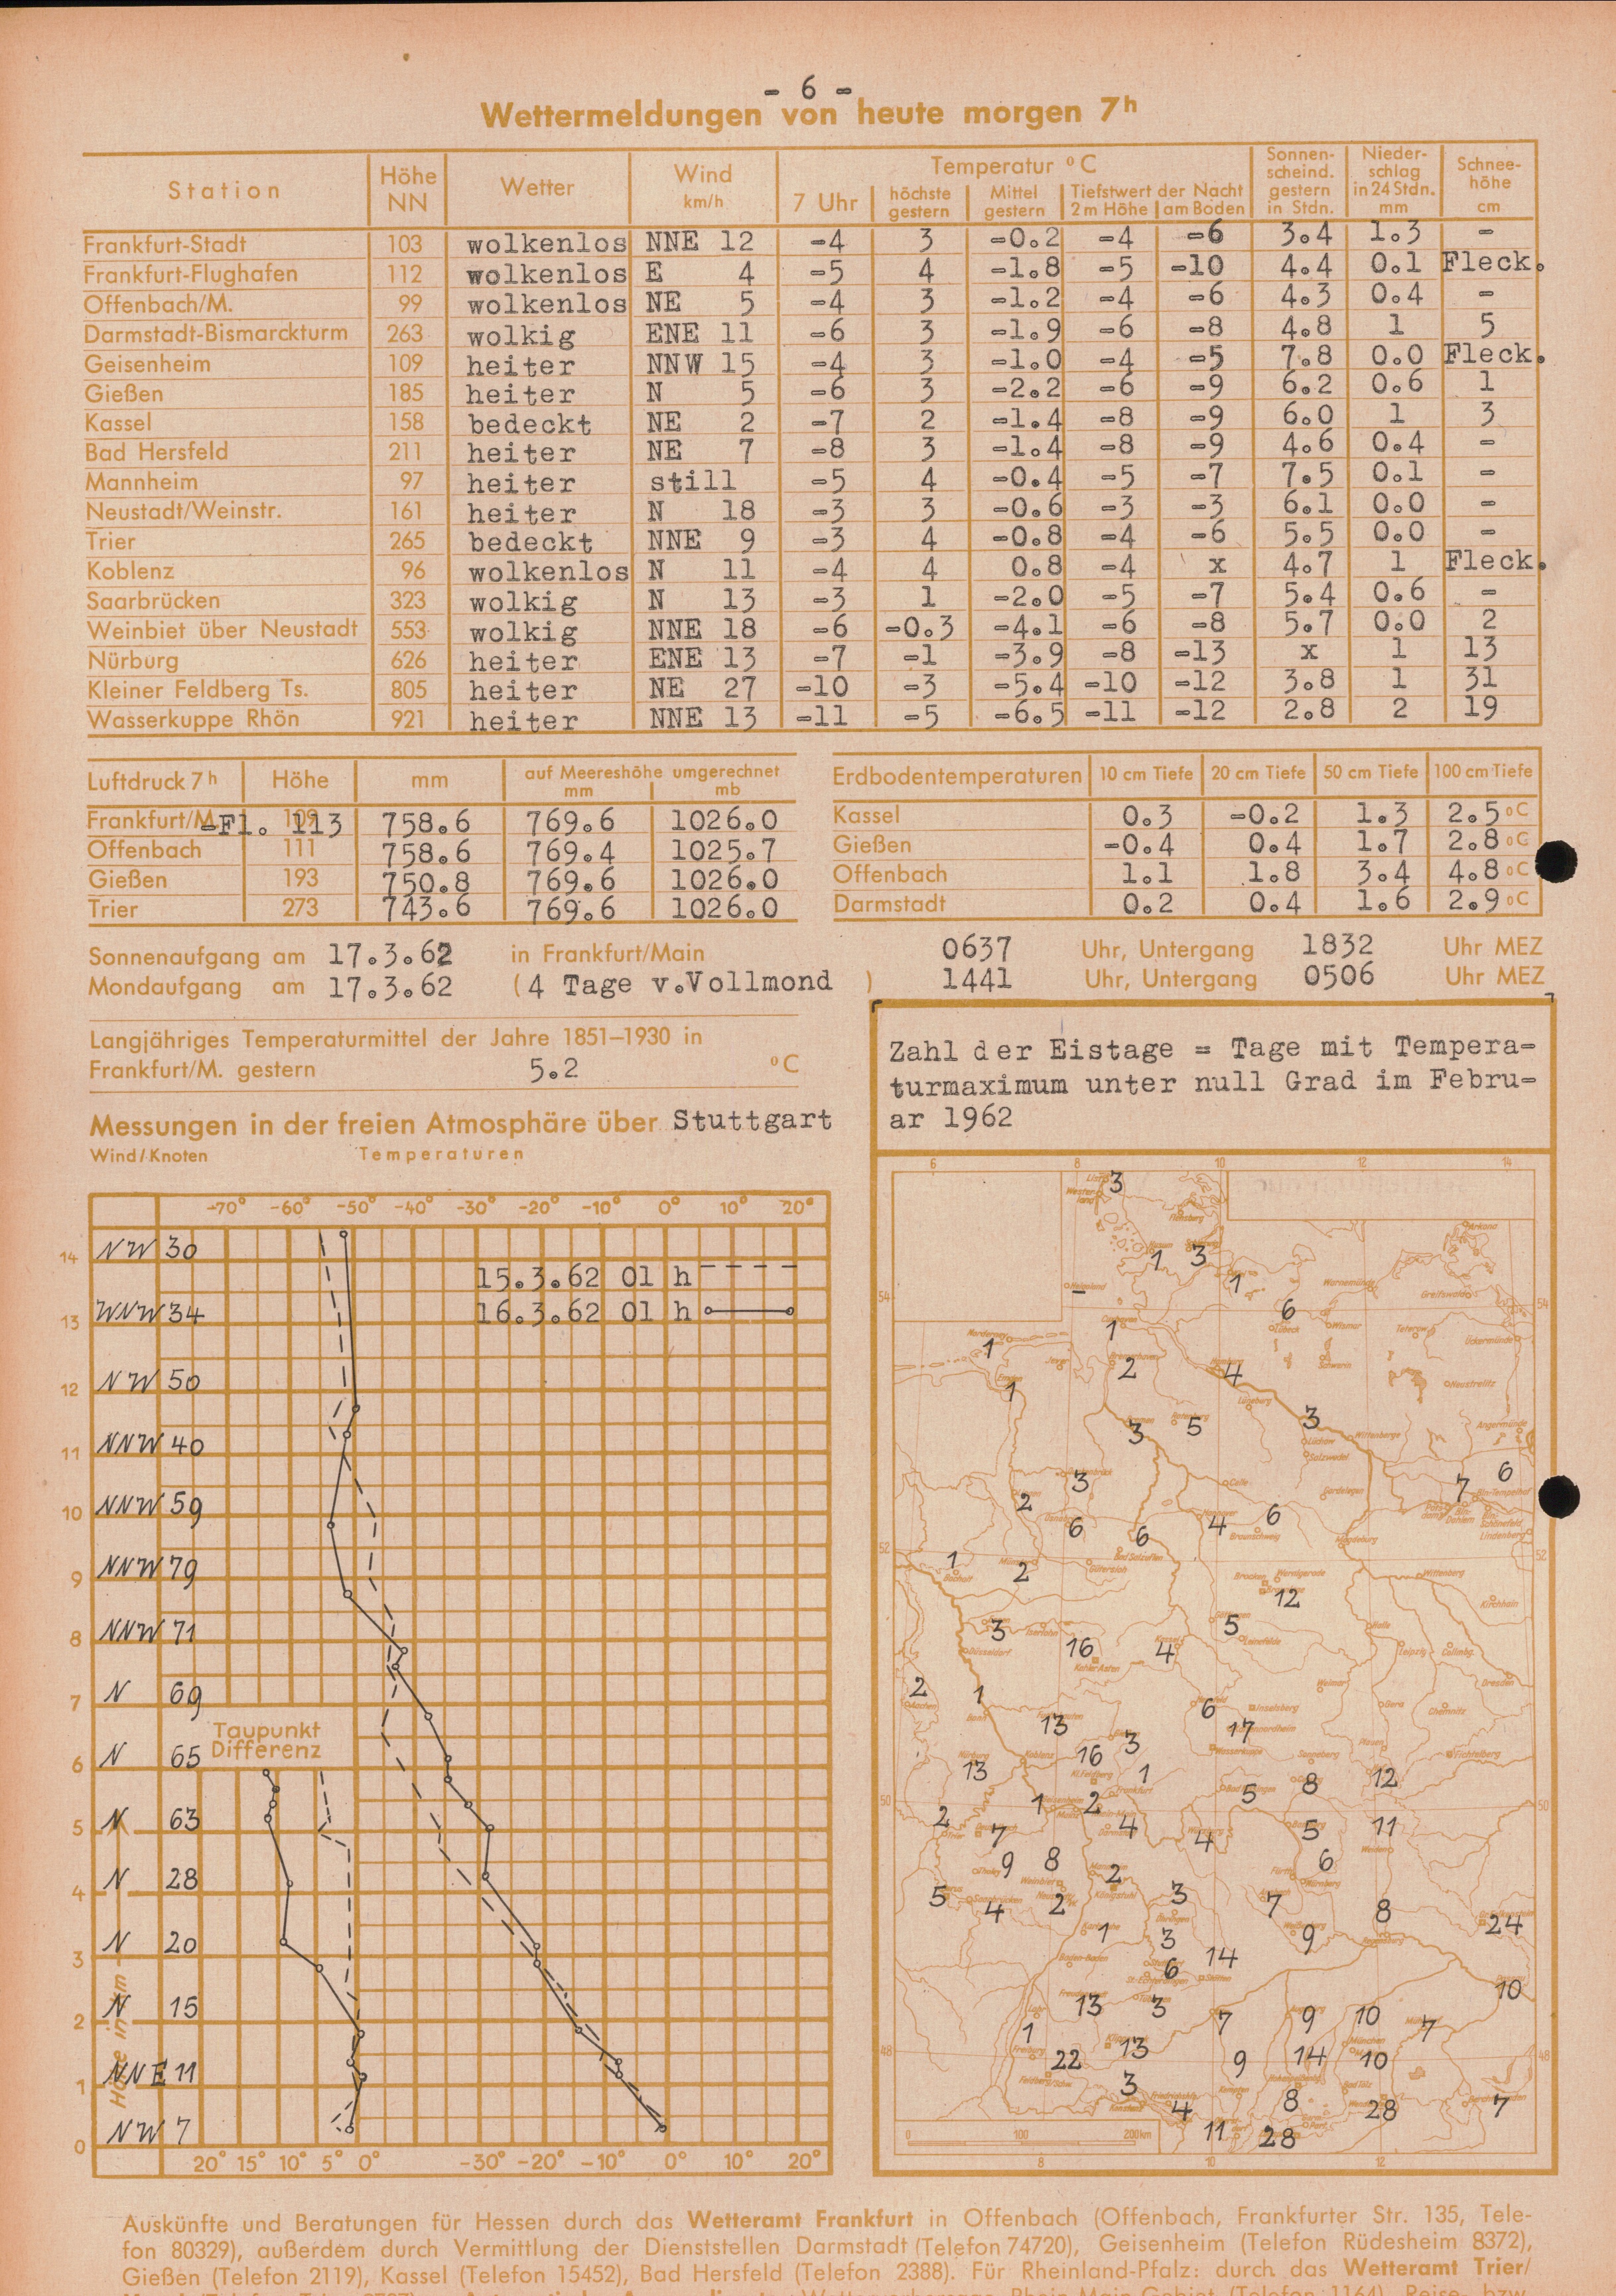 - 6 -
Wettermeldungen von heute morgen 7h
Station Höhe NN Wetter Wind km/h Temperatur °C Sonnenscheind. gestern in Stdn. Niederschlag in 24 Stdn. mm Schneehöhe cm
7 Uhr höchste gestern Mittel gestern Tiefstwert der Nacht 2 m Höhe am Boden
Frankfurt-Stadt 103 wolkenlos NNE 12 -4 3 -0.2 -4 -6 3.4 1.3 -
Frankfurt-Flughafen 112 wolkenlos E 4 -5 4 -1.8 -5 -10 4.4 0.1 Fleck.
Offenbach/M. 99 wolkenlos NE 5 -4 3 -1.2 -4 -6 4.3 0.4 -
Darmstadt-Bismarckturm 263 wolkig ENE 11 -6 3 -1.9 -6 -8 4.8 1 5
Geisenheim 109 heiter NNW 15 -4 3 -1.0 -4 -5 7.8 0.0 Fleck.
Gießen 185 heiter N 5 -6 3 -2.2 -6 -9 6.2 0.6 1
Kassel 158 bedeckt NE 2 -7 2 -1.4 -8 -9 6.0 1 3
Bad Hersfeld 211 heiter NE 7 -8 3 -1.4 -8 -9 4.6 0.4 -
Mannheim 97 heiter still -5 4 -0.4 -5 -7 7.5 0.1 -
Neustadt/Weinstr. 161 heiter N 18 -3 3 -0.6 -3 -3 6.1 0.0 -
Trier 265 bedeckt NNE 9 -3 4 -0.8 -4 -6 5.5 0.0 -
Koblenz 96 wolkenlos N 11 -4 4 0.8 -4 x 4.7 1 Fleck.
Saarbrücken 323 wolkig N 13 -3 1 -2.0 -5 -7 5.4 0.6 -
Weinbiet über Neustadt 553 wolkig NNE 18 -6 -0.3 -4.1 -6 -8 5.7 0.0 2
Nürburg 626 heiter ENE 13 -7 -1 -3.9 -8 -13 x 1 13
Kleiner Feldberg Ts. 805 heiter NE 27 -10 -3 -5.4 -10 -12 3.8 1 31
Wasserkuppe Rhön 921 heiter NNE 13 -11 -5 -6.5 -11 -12 2.8 2 19
Luftdruck 7h Höhe mm auf Meereshöhe umgerechnet mm mb
Frankfurt/M.-Fl. 113 758.6 769.6 1026.0
Offenbach 111 758.6 769.4 1025.7
Gießen 193 750.8 769.6 1026.0
Trier 273 743.6 769.6 1026.0
Erdbodentemperaturen 10 cm Tiefe 20 cm Tiefe 50 cm Tiefe 100 cm Tiefe
Kassel 0.3 -0.2 1.3 2.5 °C
Gießen -0.4 0.4 1.7 2.8 °C
Offenbach 1.1 1.8 3.4 4.8 °C
Darmstadt 0.2 0.4 1.6 2.9 °C
Sonnenaufgang am 17.3.62 in Frankfurt/Main 0637 Uhr, Untergang 1832 Uhr MEZ
Mondaufgang am 17.3.62 (4 Tage v.Vollmond ) 1441 Uhr, Untergang 0506 Uhr MEZ
Langjähriges Temperaturmittel der Jahre 1851–1930 in
Frankfurt/M. gestern 5.2 °C
Messungen in der freien Atmosphäre über Stuttgart
Wind/Knoten Temperaturen
-70° -60° -50° -40° -30° -20° -10° 0° 10° 20°
14 NW 30
15.3.62 01 h
13 WNW 34
16.3.62 01 h
12 NW 50
11 NNW 40
10 NNW 59
9 NNW 79
8 NNW 71
7 N 69
Taupunkt
Differenz
6 N 65
5 N 63
4 N 28
3 N 20
2 N 15
1 NNE 11
0 NW 7
Höhe in km
20° 15° 10° 5° 0° -30° -20° -10° 0° 10° 20°
Zahl der Eistage = Tage mit Tempera-
turmaximum unter null Grad im Febru-
ar 1962
6 8 10 12 14
3
1 3 1
54 - 6 54
1 1 2 4
1 3 5 3
3 2 7 6
6 6 4 6
52 1 2 52
12
3 16 4 5
2 1 6
13 3 17
13 16 1 5 8 12
50 1 2 50
2 7 4 4 5 11
9 8 2 6
5 4 2 3 7 8 24
1 3 9
6 14 10
13 3 7 9 10 7
48 1 13 48
22 9 14 10
3 8 28 7
4 11 28
0 100 200km
8 10 12
Auskünfte und Beratungen für Hessen durch das Wetteramt Frankfurt in Offenbach (Offenbach, Frankfurter Str. 135, Tele-
fon 80329), außerdem durch Vermittlung der Dienststellen Darmstadt (Telefon 74720), Geisenheim (Telefon Rüdesheim 8372),
Gießen (Telefon 2119), Kassel (Telefon 15452), Bad Hersfeld (Telefon 2388). Für Rheinland-Pfalz: durch das Wetteramt Trier/